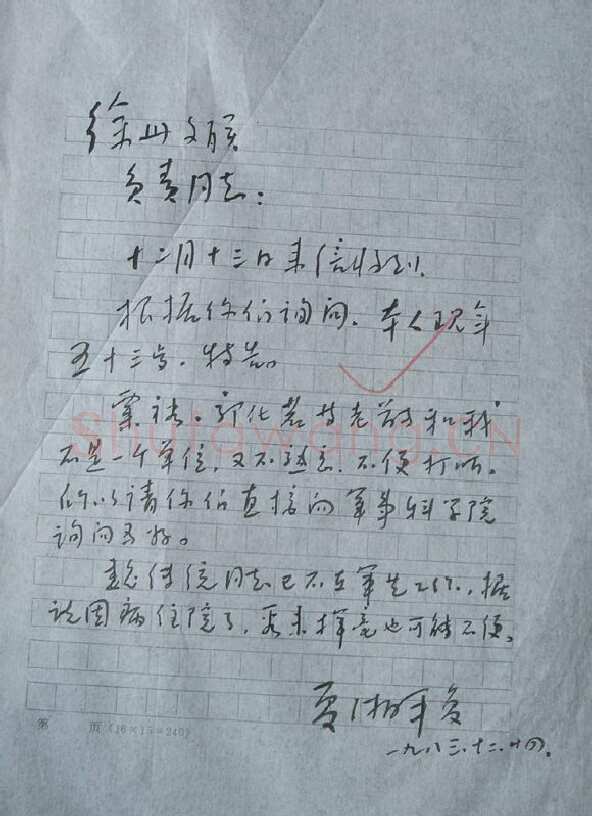 徐州文联
负责同志：
十二月十三日来信收到。
根据你们询问，本人现年
五十三岁，特告。
粟裕。郭化若等老前和我
不是一个单位，又不熟悉，不便打听。
所以请你们直接向军事科学院
询问为好。
同志已不在军先工作，据
说因病住院了，要来挥毫也可能不便。
夏湘平复
一九八三.十二.廿四.
第 页 (16×15=240)
Shufawang.CN